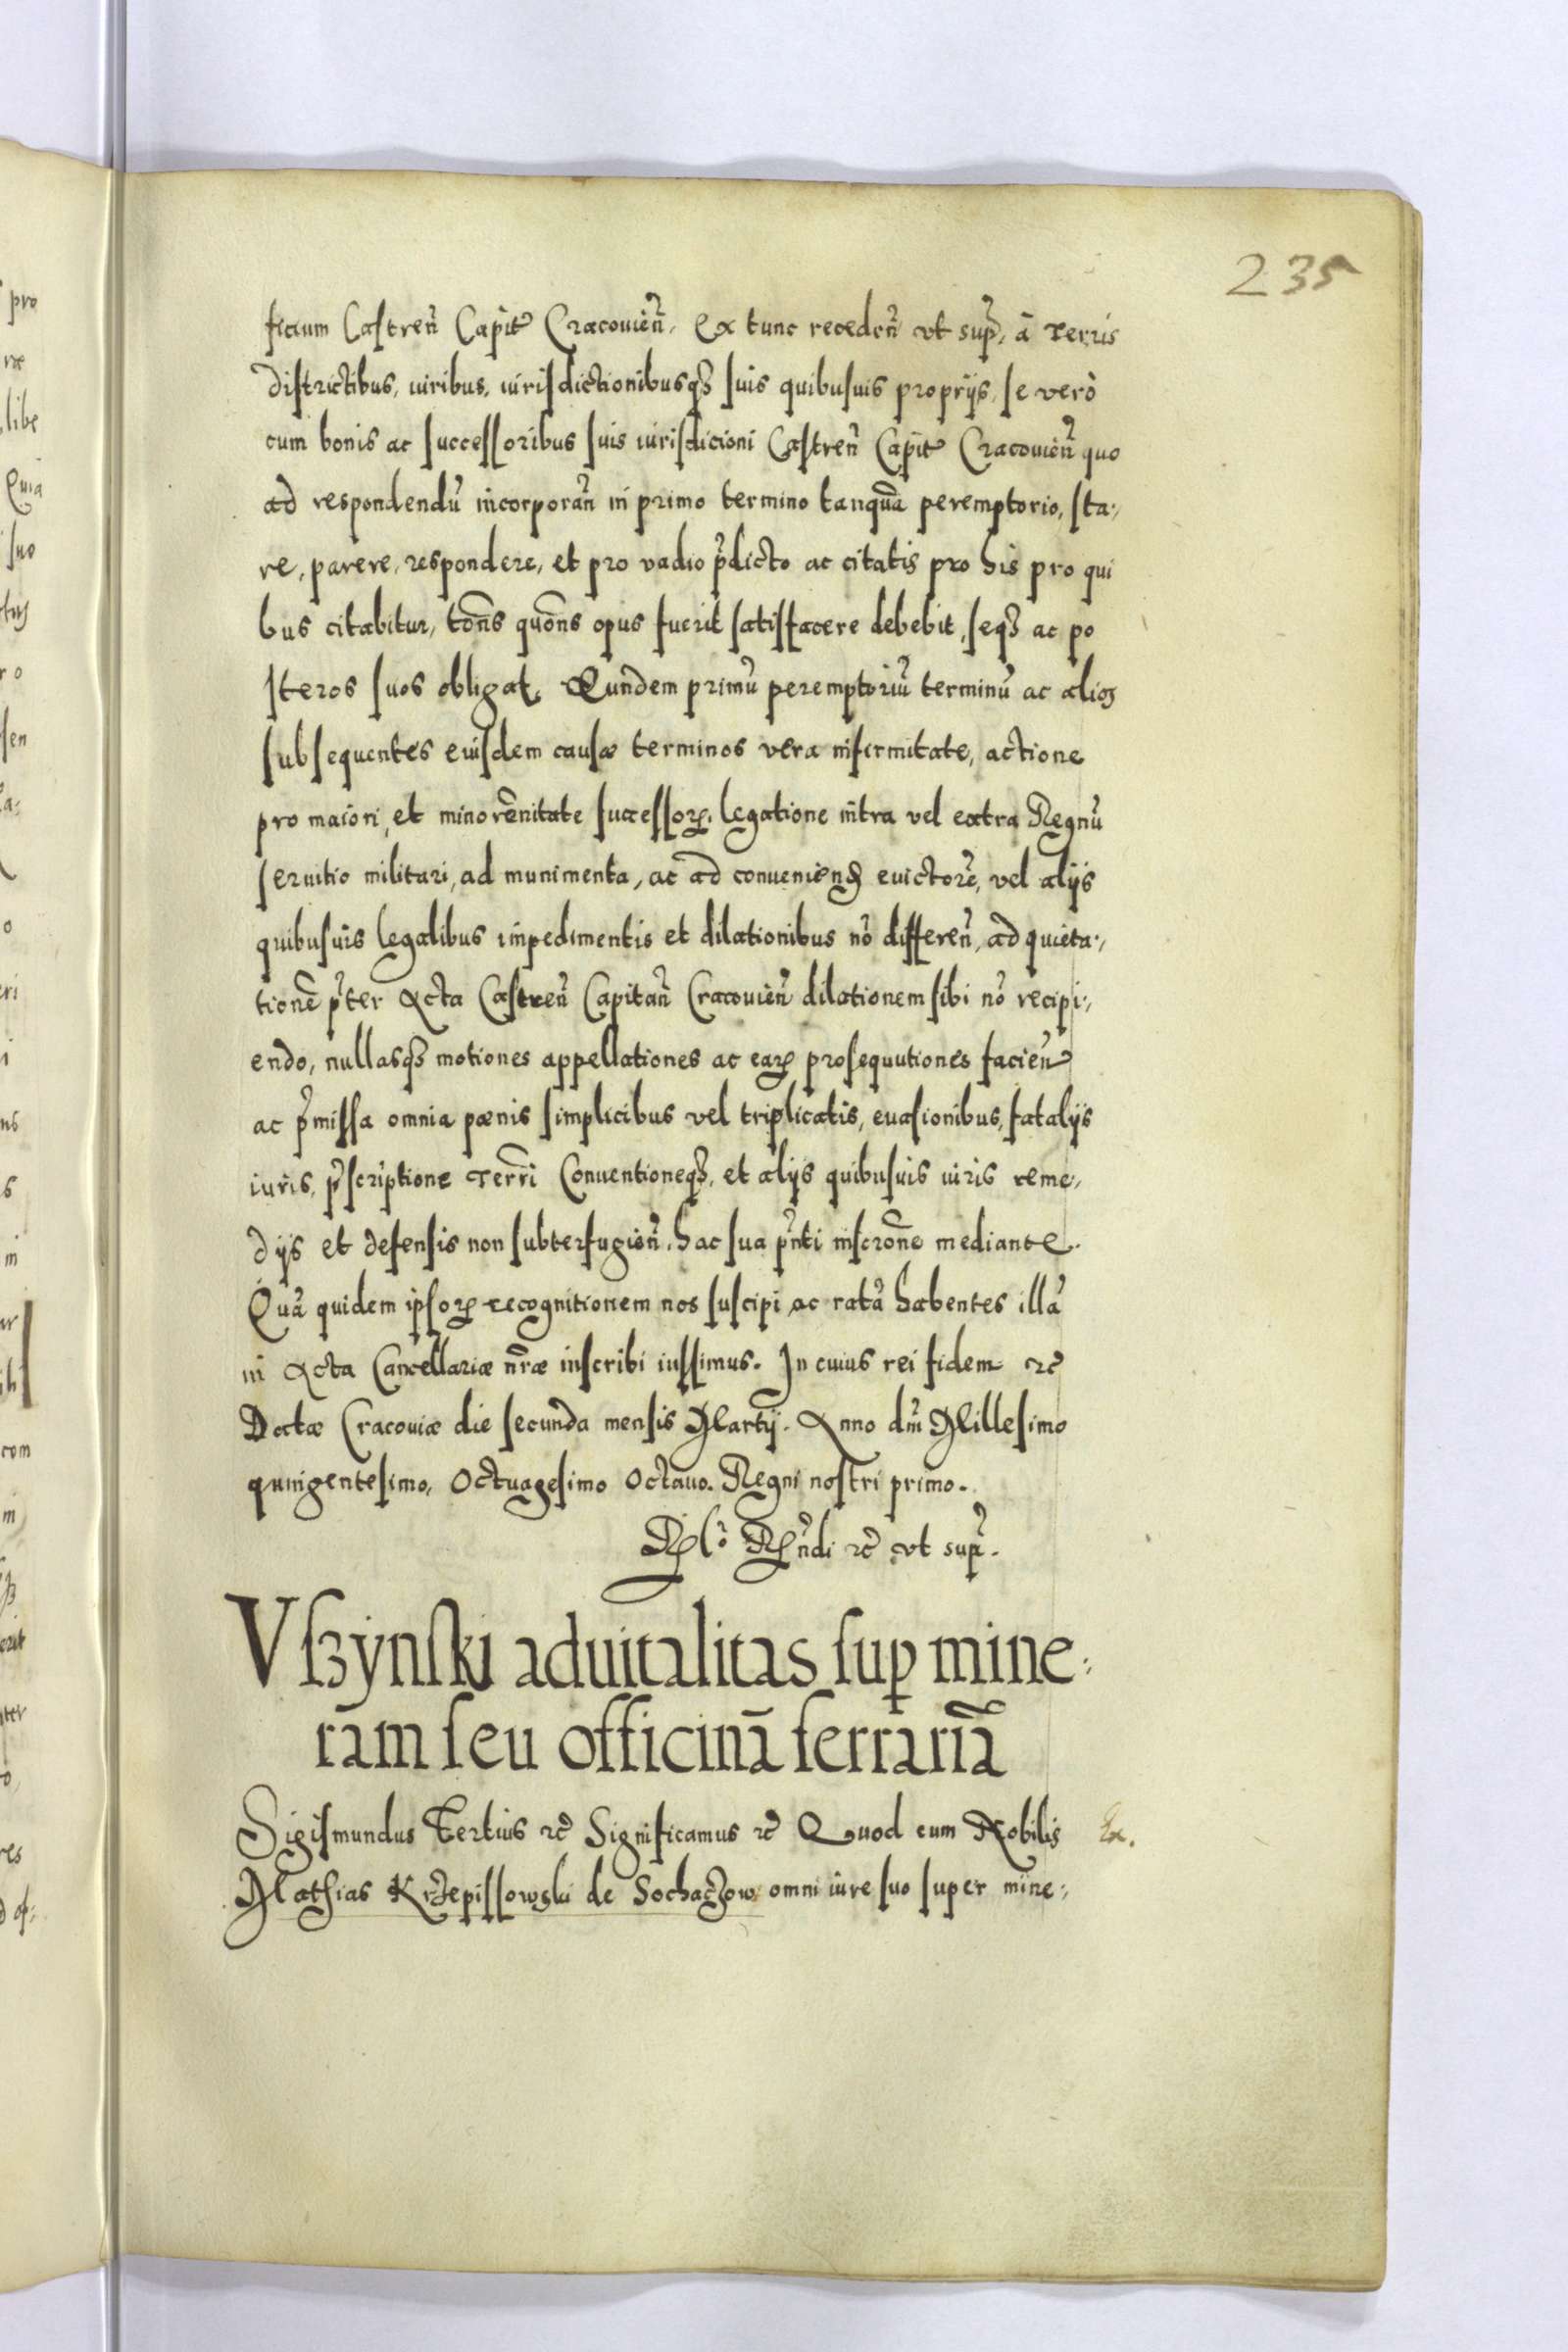 235
ficium Castren̄ Capit̄ Cracouien̄, Ex tunc receden̄ vt sup̄, à Terris
districtibus, iuribus, iurisdictionibusqꝫ suis quibusuis proprijs, se verò
cum bonis ac successoribus suis iurisdicioni Castren̄ Capit̄ Cracouien̄ quo
ad respondendū incorporan̄ in primo termino tanquā peremptorio, sta-
re, parere, respondere, et pro vadio p̄dicto ac citatis pro his pro qui
bus citabitur, tōns quōns opus fuerit satisfacere debebit, seqꝫ ac po
steros suos obligat. Eundem primū peremptoriū terminū ac alios
subsequentes eiusdem causæ terminos vera infirmitate, actione
pro maiori, et minorēnitate successoꝝ, legatione intra vel extra Regnū
seruitio militari, ad munimenta, ac ad conueniend̄ euictorē, vel alijs
quibusuis legalibus impedimentis et dilationibus nō differen̄, ad quieta-
tionē p̄ter Acta Castren̄ Capitan̄ Cracouien̄ dilationem sibi nō recipi-
endo, nullasqꝫ motiones appellationes ac eaꝝ prosequutiones facien̄
ac p̄missa omnia pœnis simplicibus vel triplicatis, euasionibus, fatalijs
iuris, p̄scriptione Terrī Conuentioneqꝫ, et alijs quibusuis iuris reme-
dijs et defensis non subterfugien̄, hac sua p̄nti inscrōne mediante.
Quā quidem ipsoꝝ recognitionem nos suscipi ac ratā habentes illā
in Acta Cancellariæ nr̄æ inscribi iussimus. In cuius rei fidem ꝛc̄
Datæ Cracouiæ die secunda mensis Martij. Anno dnī Millesimo
quingentesimo, Octuagesimo Octauo. Regni nostri primo.
Rl̄o Rn̄di ꝛc̄ vt sup̄.
Vſzynſki aduitalitas ſup̱ mine-
ram ſeu officinā ferrariā
Sigismundus Tertius ꝛc̄ Significamus ꝛc̄ Quod cum Nobilis Ex.
Mathias Krzepissowski de Sochaczow omni iure suo super mine-